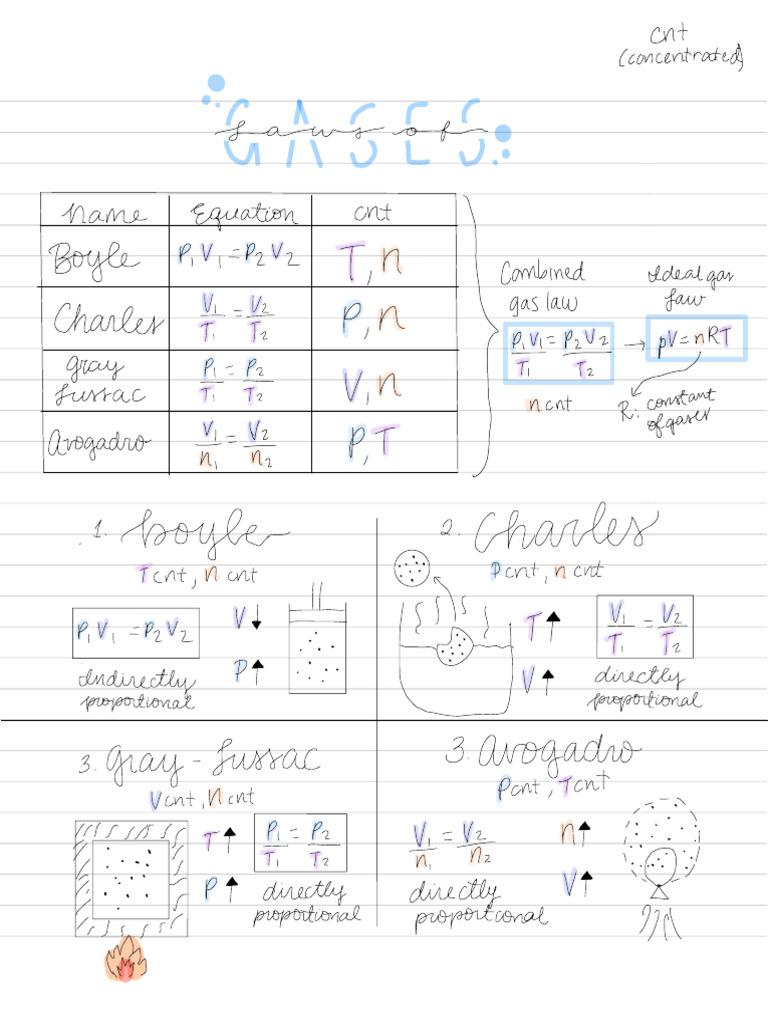 cnt
(concentrated)
Laws of
GASES
Name Equation cnt
Boyle P₁V₁ = P₂V₂ T, n
Charles V₁/T₁ = V₂/T₂ P, n
Gray
Lussac P₁/T₁ = P₂/T₂ V, n
Avogadro V₁/n₁ = V₂/n₂ P, T
Combined
gas law
P₁V₁/T₁ = P₂V₂/T₂ →
n cnt
Ideal gas
law
pV = nRT
R: constant
of gases
1. Boyle
T cnt, n cnt
P₁V₁ = P₂V₂
V ↓
P ↑
Indirectly
proportional
2. Charles
P cnt, n cnt
T ↑
V ↑
V₁/T₁ = V₂/T₂
directly
proportional
3. Gray - Lussac
V cnt, n cnt
T ↑
P ↑
P₁/T₁ = P₂/T₂
directly
proportional
3. Avogadro
P cnt, T cnt
V₁/n₁ = V₂/n₂
n ↑
V ↑
directly
proportional